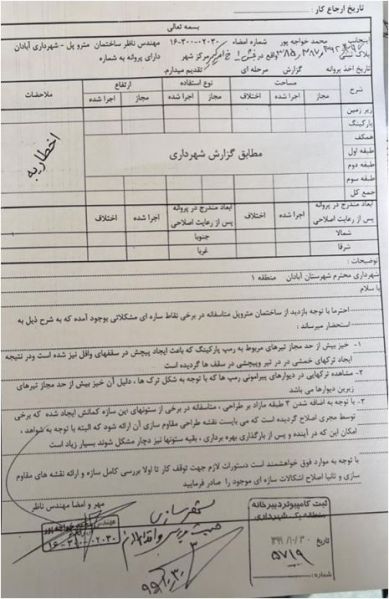 تاریخ ارجاع کار :
بسمه تعالی
اینجانب محمد خواجه پور شماره امضاء ۰۲۰۳۰-۳۰۰-۱۶ مهندس ناظر ساختمان مترو پل - شهرداری آبادان
پلاک ثبتی واقع در بخش خ امیر مرکز شهر دارای پروانه به شماره
تاریخ اخذ پروانه گزارش مرحله ای تقدیم میدارم.
شرح مساحت نوع استفاده ارتفاع ملاحضات
مجاز اجرا شده اختلاف مجاز اجرا شده مجاز اجرا شده
زیر زمین
پارکینگ
همکف
طبقه اول
طبقه دوم
طبقه سوم
جمع کل
مطابق گزارش شهرداری
اخطاریه
ابعاد مندرج در پروانه پس از رعایت اصلاحی اجرا شده اختلاف ابعاد مندرج در پروانه پس از رعایت اصلاحی اجرا شده اختلاف
شمالا جنوبا
شرقا غربا
توضیحات :
شهرداری محترم شهرستان آبادان منطقه ۱
با سلام
احتراما با توجه بازدید از ساختمان متروپل متاسفانه در برخی نقاط سازه ای مشکلاتی بوجود آمده که به شرح ذیل به
استحضار میرساند :
۱- خیز بیش از حد مجاز تیرهای مربوط به رمپ پارکینگ که باعث ایجاد پیچش در سقفهای وافل نیز شده است ودر نتیجه
ایجاد ترکهای خمشی در در تیر وپیچشی در سقف ها گردیده است
۲- مشاهده ترکهایی در دیوارهای پیرامونی رمپ ها که با توجه به شکل ترک ها ، دلیل آن خیز بیش از حد مجاز تیرهای
زیرین دیوارها می باشد
۲- با توجه به اضافه شدن ۳ طبقه مازاد بر طراحی ، متاسفانه در برخی از ستونهای این سازه کمانش ایجاد شده که برخی
توسط مجری اصلاح گردیده است که می بایست نقشه طراحی مقاوم سازی آن ارائه شود که البته با توجه به شواهد ،
امکان این که در آینده و پس از بارگذاری بهره برداری ، بقیه ستونها نیز دچار مشکل شوند بسیار زیاد است
با توجه به موارد فوق خواهشمند است دستورات لازم جهت توقف کار تا اولا بررسی کامل سازه و ارائه نقشه های مقاوم
سازی و ثانیا اصلاح اشکالات سازه ای موجود را صادر فرمایید
مهر و امضا مهندس ناظر
خواجه پور
۱۶-۳۰۰-۰۲۰۳۰
شهرسازی
ثبت کامپیوتر دبیرخانه
منطقه یک شهرداری
تاریخ ۳۹۱/۱۰/۳۰
شماره: ۵۷۱۹